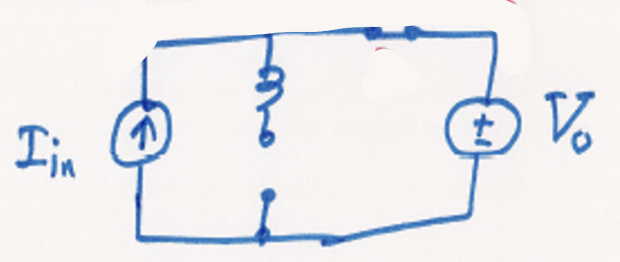 I_in
±
V_o